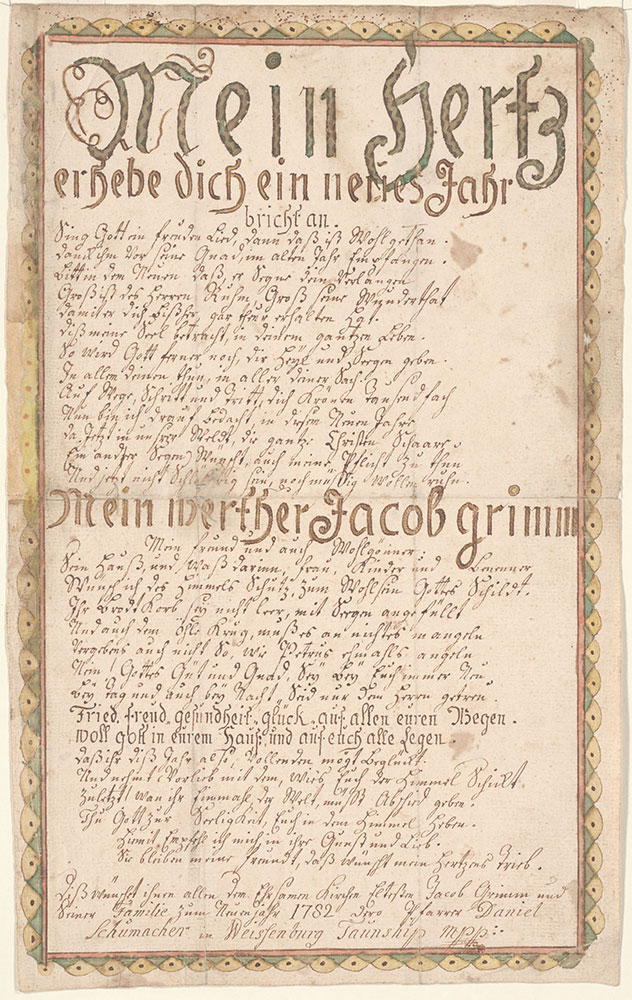 Mein Hertz
erhebe dich ein neues Jahr
bricht an.
Sing Gott ein freuden Lied, dann daß ist Wohl gethan.
danck ihm vor seine Gnad, im alten Jahr Empfangen.
Bitt in dem Neuen daß, er Segne dein Verlangen
Groß ist des Herren Ruhm, Groß seine Wunderthat
damit er dich bißher, gar theur erhalten Hat.
diß meine Seel betracht, in deinem gantzen Leben.
So wird Gott ferner noch, dir Heyl und Seegen geben.
In allem deinen thun, in aller deiner Sach.
Auf Wege, Schritt und Tritt, dich Krönen tausendfach
Nun bin ich drauf bedacht, in diesem Neuen Jahre
da Jetzt in unsrer Weldt, die gantze Christen Schaare
Ein andrer Segen Wunscht, auch meine Pflicht zu thun
Und jetzt nicht Schläfrig sein, noch müssig wollen ruhn.
Mein werther Jacob grimm
Mein freund und auch Wohlgönner:
Sein Hauß, und, waß darinn, frau, Kinder und
Wünsch ich des Himmels Schutz, zum Wohlsein Gottes Schildt.
Ihr Brodt Korb sey nicht leer, mit Seegen angefüllt
Und auch dem Öhle Krug, muß es an nichtes mangeln
Vergebens auch nicht So, wie Petrus ehmahls angeln
Nein! Gottes Güt und Gnad, Sey bey Euch immer Neu
bey tag und auch bey Nacht, Seid nur dem Herren getreu.
Fried, freud, gesundheit, glück, auf allen euren Wegen.
woll gott in eurem Hauß, und auf euch alle Legen.
daß ihr diß Jahr also, Vollenden mögt Beglückt.
Und nehmet Vorlieb mit dem, wies Euch der Himmel Schickt
Zuletzt! wan ihr Einmahl, der Welt, müßt Abschied geben.
Thu Gott zur Seeligkeit, Euch in dem Himmel Heben.
Hiemit Empfehl ich mich in ihre Gunst und Lieb.
Sie bleiben meine freundt, daß wünscht mein Hertzens Trieb.
Diß wünschet ihnen allen dem Ehrsamen Kirchen Eltesten Jacob Grimm und
Seiner Familie, zum Neuenjahr 1782 Dero Pfarrer Daniel
Schumacher in Weissenburg Taunship mpp::